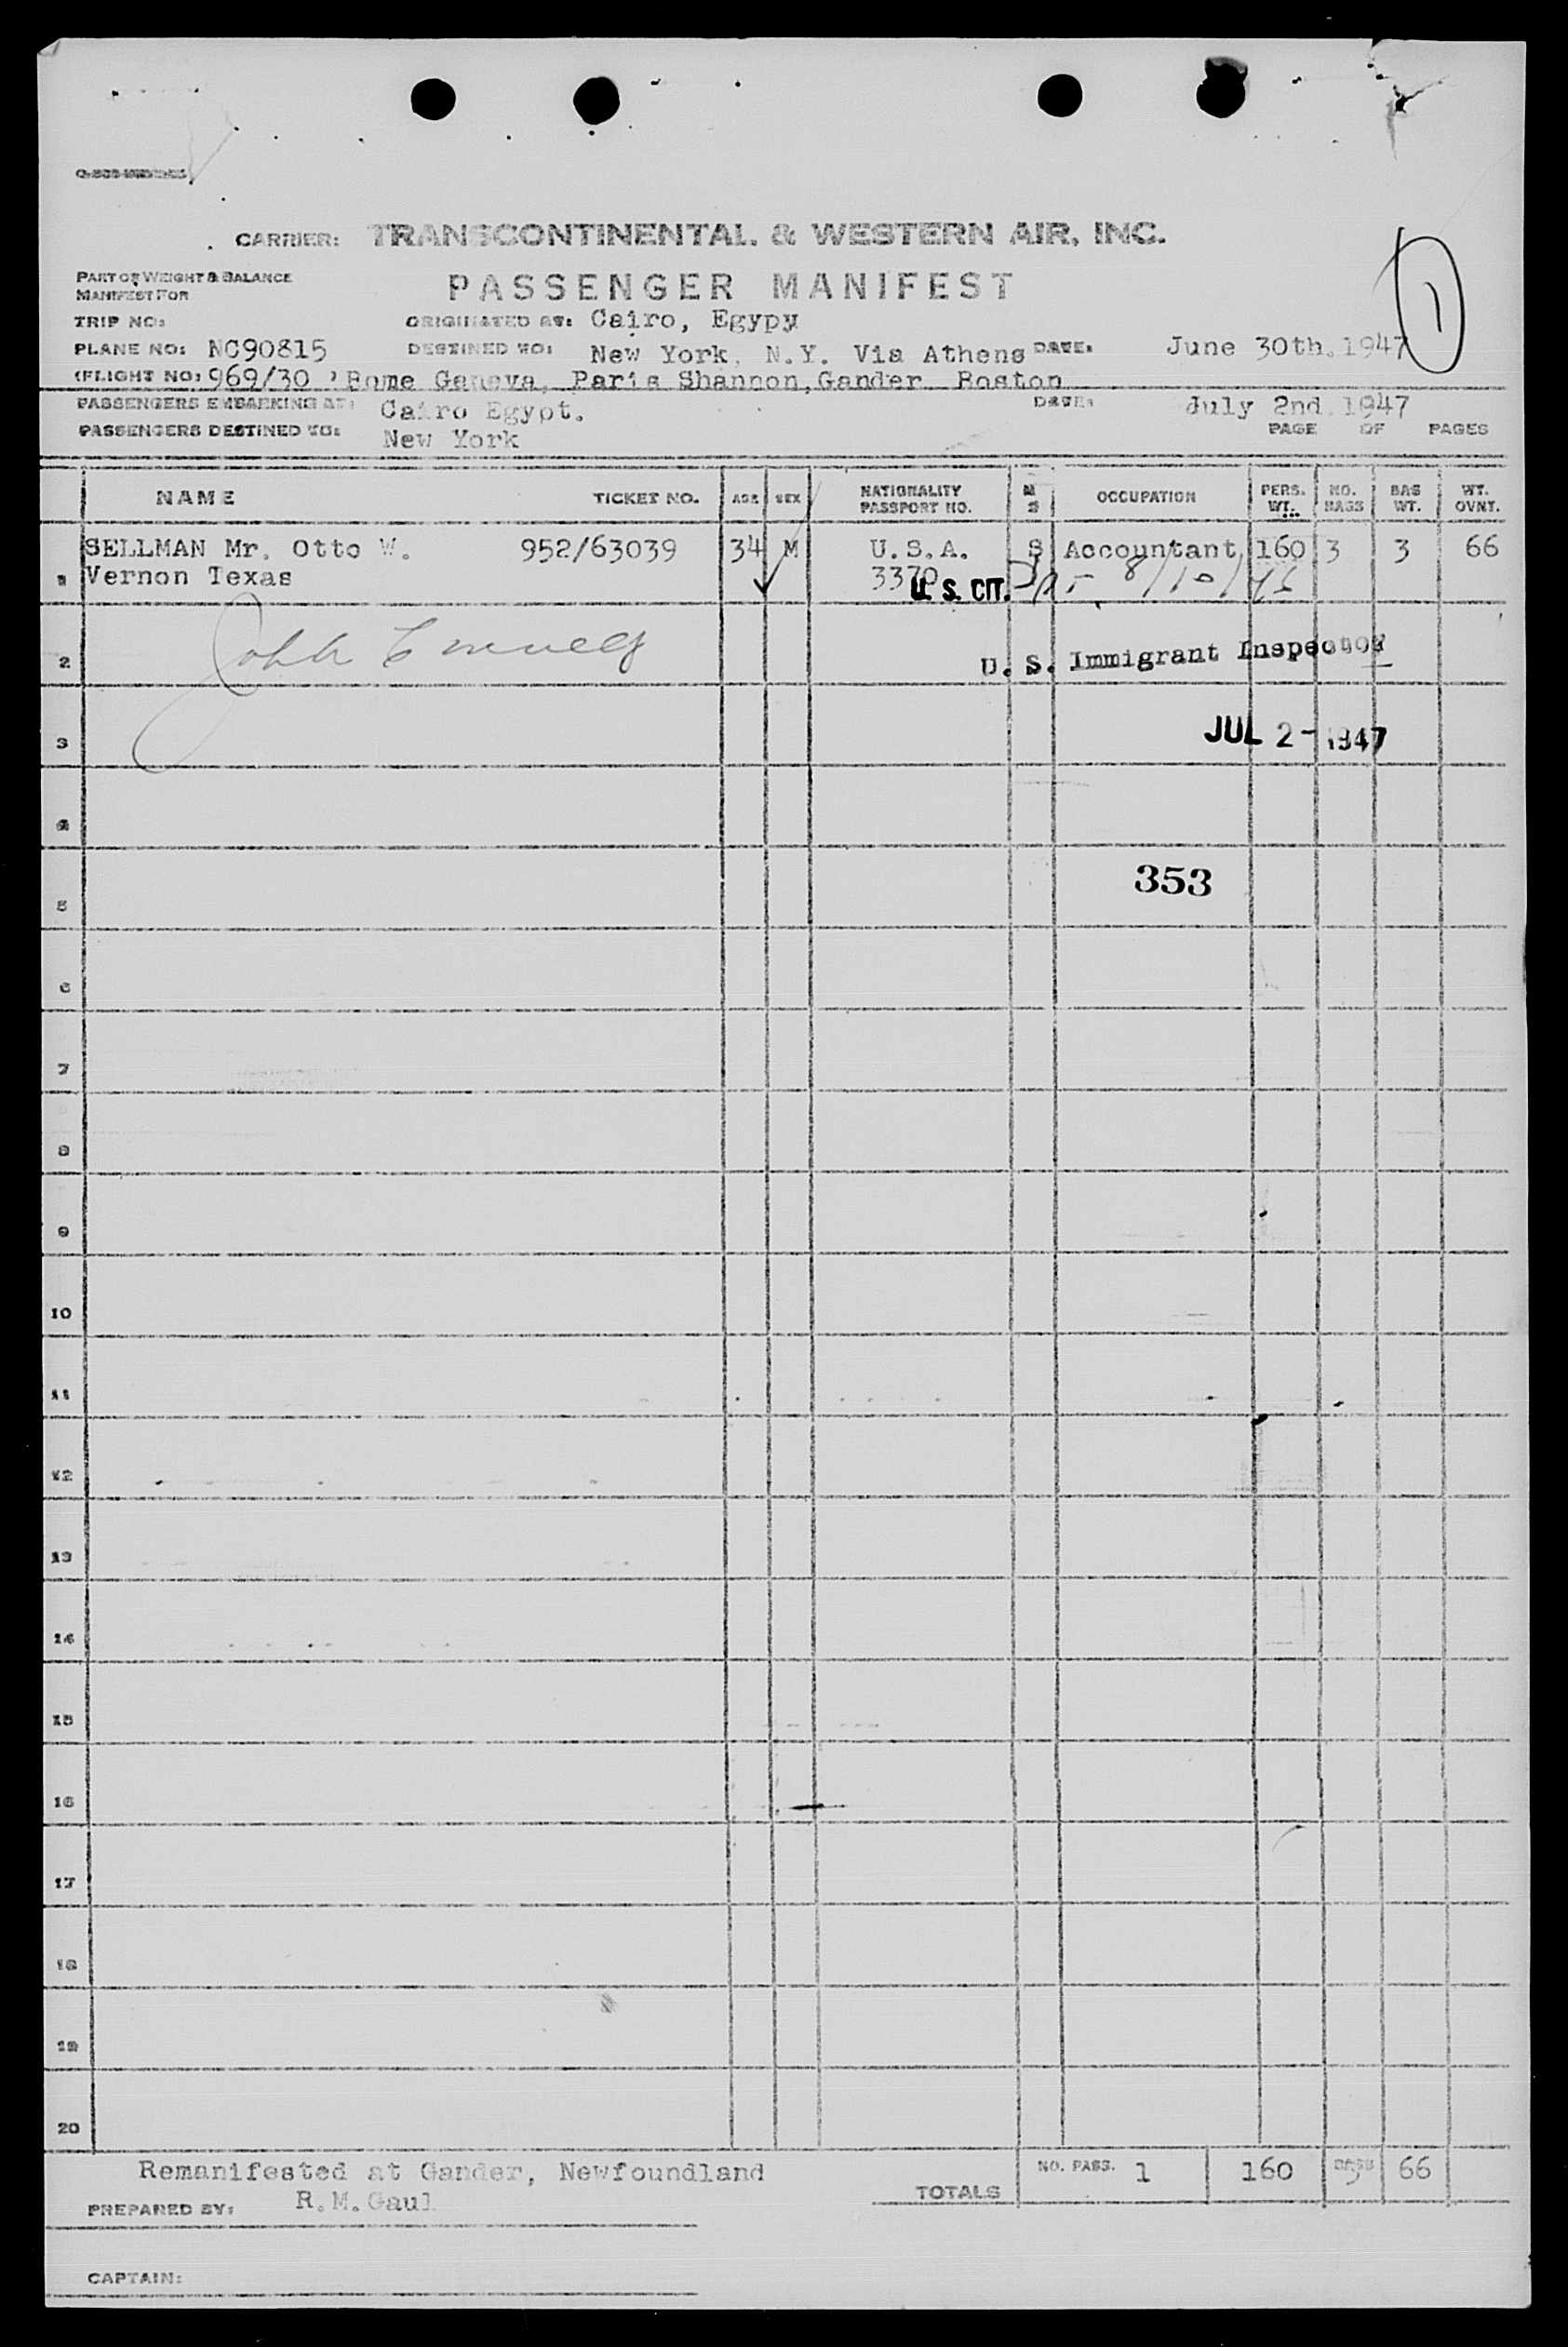 CARRIER: TRANSCONTINENTAL & WESTERN AIR, INC.
PART OF WEIGHT & BALANCE
MANIFEST FOR
PASSENGER MANIFEST
TRIP NO: ORIGINATED AT: Cairo, Egypy
PLANE NO: NC90815 DESTINED TO: New York, N.Y. Via Athens DATE: June 30th.1947
1
(FLIGHT NO: 969/30 ) Rome Geneva, Paris Shannon, Gander Boston
PASSENGERS EMBARKING AT: Cairo Egypt. DATE: July 2nd.1947
PASSENGERS DESTINED TO: New York PAGE OF PAGES
NAME TICKET NO. AGE SEX NATIONALITY PASSPORT NO. M S OCCUPATION PERS. WT. NO. BAGS BAG WT. WT. OVNT.
SELLMAN Mr. Otto W. 952/63039 34 M U.S.A. S Accountant 160 3 3 66
1 Vernon Texas 3370 U. S. CIT. 8/10/46
2 John U. S. Immigrant Inspector
3 JUL 2-1947
4
5 353
6
7
8
9
10
11
12
13
14
15
16
17
18
19
20
Remanifested at Gander, Newfoundland
PREPARED BY: R.M.Gaul
TOTALS NO. PASS. 1 160 BAGS 3 66
CAPTAIN: